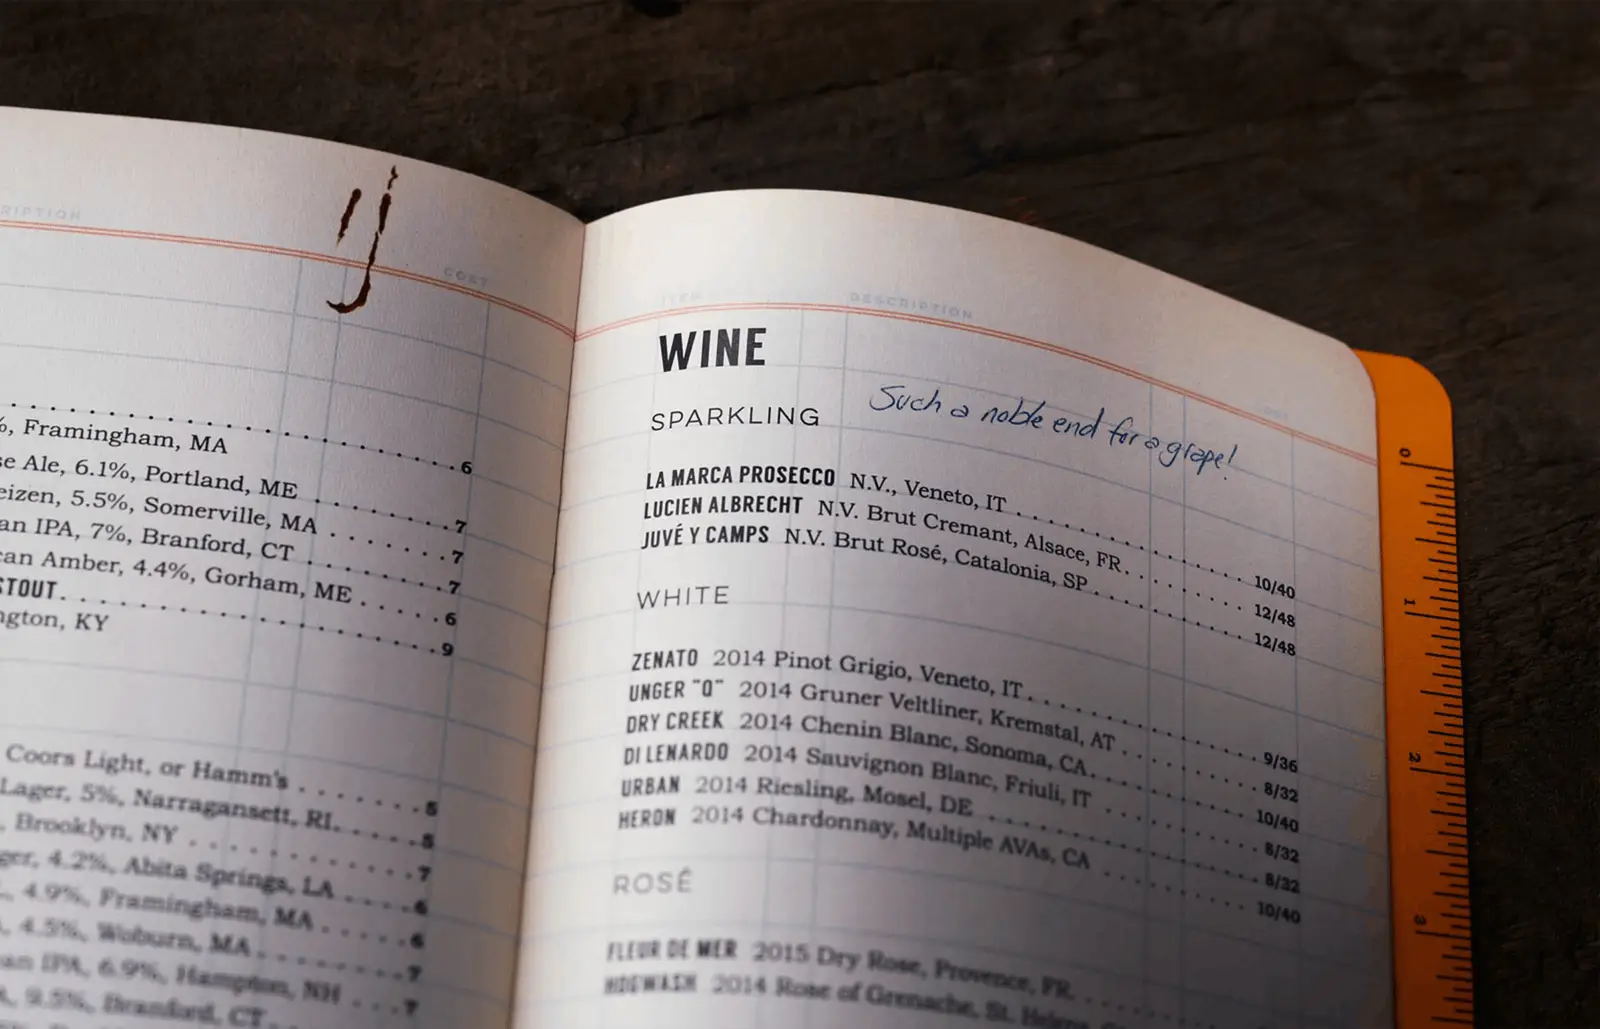 RIPTION
COST
6
%, Framingham, MA
se Ale, 6.1%, Portland, ME . . . . . . . . . . 7
eizen, 5.5%, Somerville, MA . . . . . . . . 7
an IPA, 7%, Branford, CT . . . . . . . . . . 7
can Amber, 4.4%, Gorham, ME . . . . . 6
STOUT. . . . . . . . . . . . . . . . . . . . . . 9
ngton, KY
Coors Light, or Hamm's . . . . . . . 5
Lager, 5%, Narragansett, RI. . . . . . 5
, Brooklyn, NY . . . . . . . . . . . 7
ger, 4.2%, Abita Springs, LA . . . . . 6
, 4.9%, Framingham, MA . . . . . . 6
, 4.5%, Woburn, MA . . . . . . . . . 7
an IPA, 6.9%, Hampton, NH . . . 7
, 9.5%, Branford, CT
ITEM
DESCRIPTION
COST
WINE
SPARKLING
Such a noble end for a grape!
LA MARCA PROSECCO N.V., Veneto, IT . . . . . . . . . . 10/40
LUCIEN ALBRECHT N.V. Brut Cremant, Alsace, FR. . . . . . . . . 12/48
JUVÉ Y CAMPS N.V. Brut Rosé, Catalonia, SP. . . . . . . . . . 12/48
WHITE
ZENATO 2014 Pinot Grigio, Veneto, IT. . . . . . . . . . 9/36
UNGER "Q" 2014 Gruner Veltliner, Kremstal, AT . . . . . . . . 8/32
DRY CREEK 2014 Chenin Blanc, Sonoma, CA. . . . . . . . . . 10/40
DI LENARDO 2014 Sauvignon Blanc, Friuli, IT . . . . . . . . . . 8/32
URBAN 2014 Riesling, Mosel, DE . . . . . . . . . . 8/32
HERON 2014 Chardonnay, Multiple AVAs, CA . . . . . . . . . . 10/40
ROSÉ
FLEUR DE MER 2015 Dry Rose, Provence, FR. . . . .
HOGWASH 2014 Rose of Grenache, St. Helena
0
1
2
3